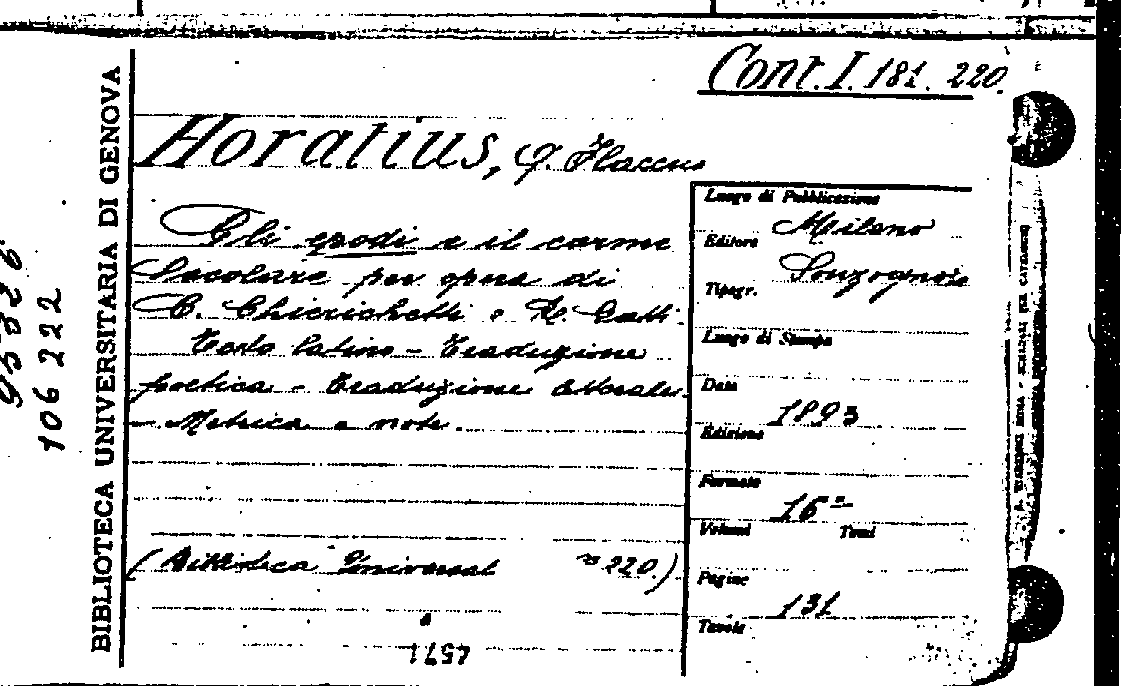 Cont. I. 181. 220.
Horatius, Q. Flaccus
Gli epodi e il carme
Secolare per opera di
C. Chierichetti e
Testo latino - Traduzione
poetica - Traduzione letterale
- Metrica e note.
(Biblioteca Universal n 220.)
4571
Luogo di Pubblicazione
Milano
Editore
Sonzogno
Tipogr.
Luogo di Stampa
Data
1893
Edizione
Formato
16°
Volumi Tomi
Pagine
131
Tavole
BIBLIOTECA UNIVERSITARIA DI GENOVA
106222